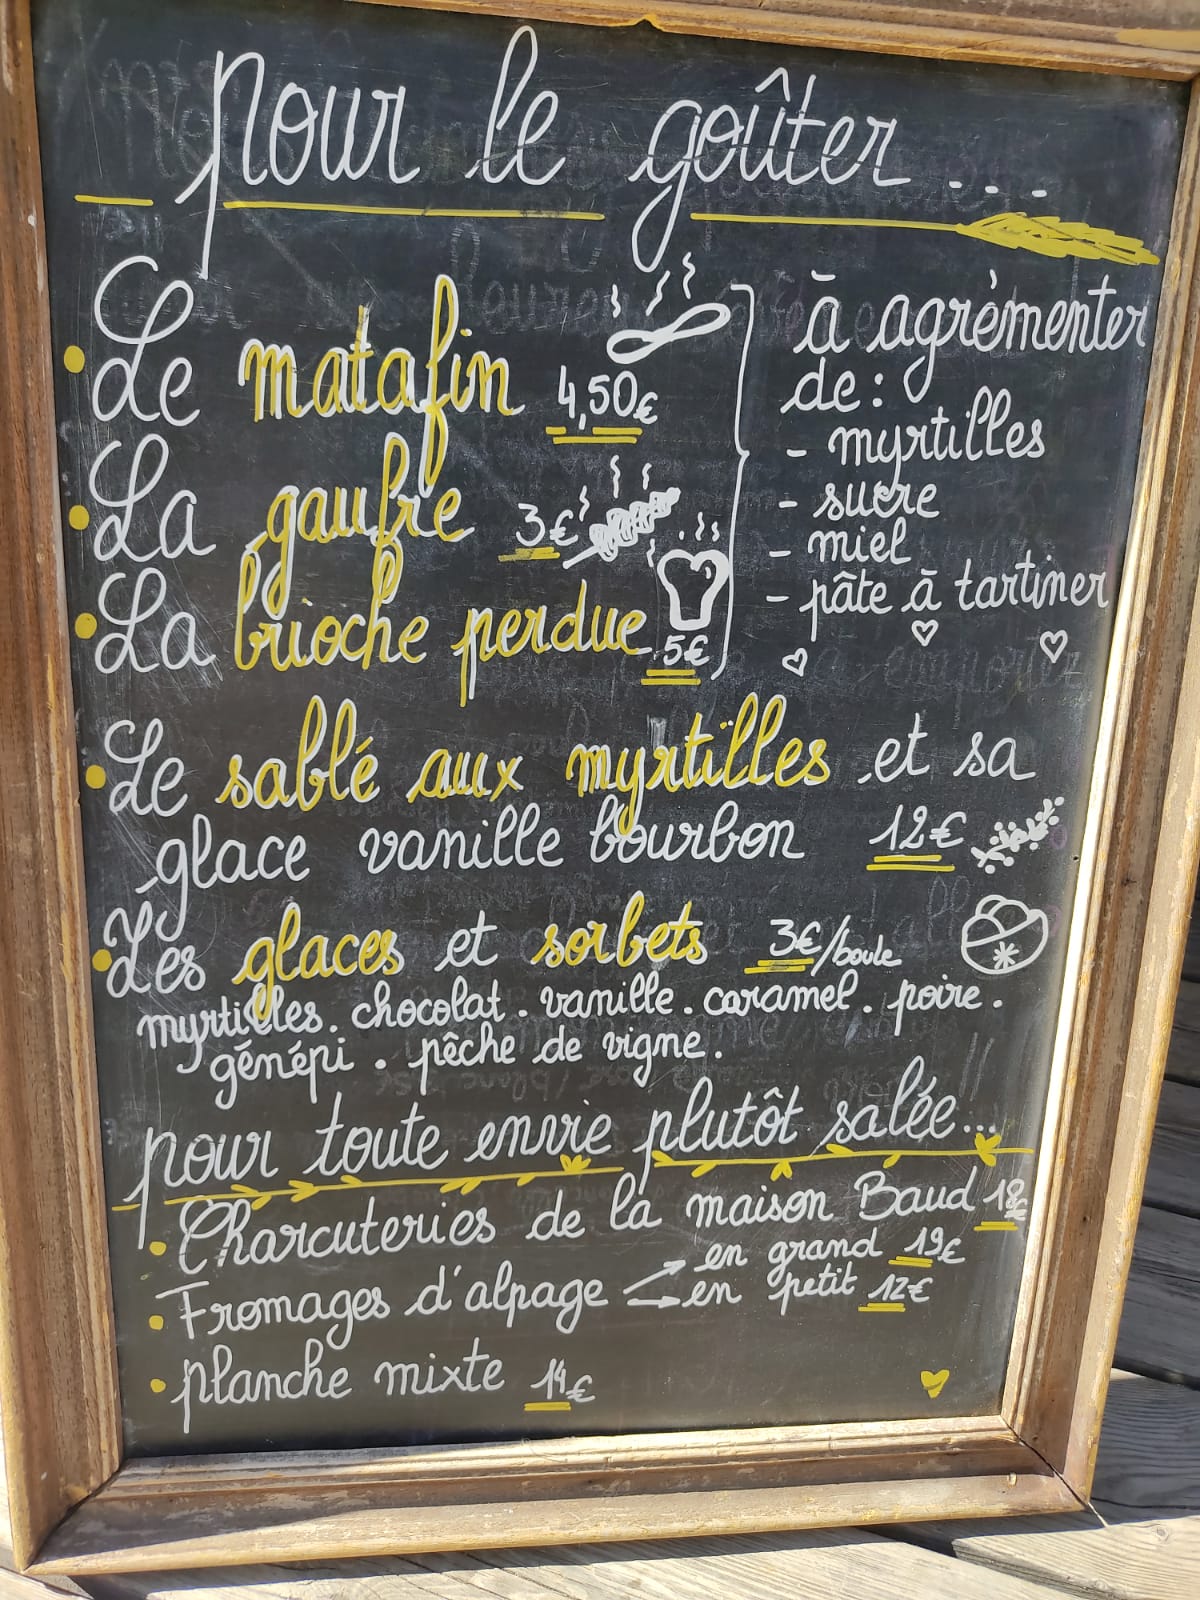 pour le goûter...
• Le matafin 4,50€
• La gaufre 3€
• La brioche perdue 5€
à agrémenter
de:
- myrtilles
- sucre
- miel
- pâte à tartiner
• Le sablé aux myrtilles et sa
glace vanille bourbon 12€
• Les glaces et sorbets 3€/boule
myrtilles. chocolat. vanille. caramel. poire.
génépi. pêche de vigne.
pour toute envie plutôt salée...
• Charcuteries de la maison Baud 18€
• Fromages d'alpage → en grand 19€
→ en petit 12€
• planche mixte 14€